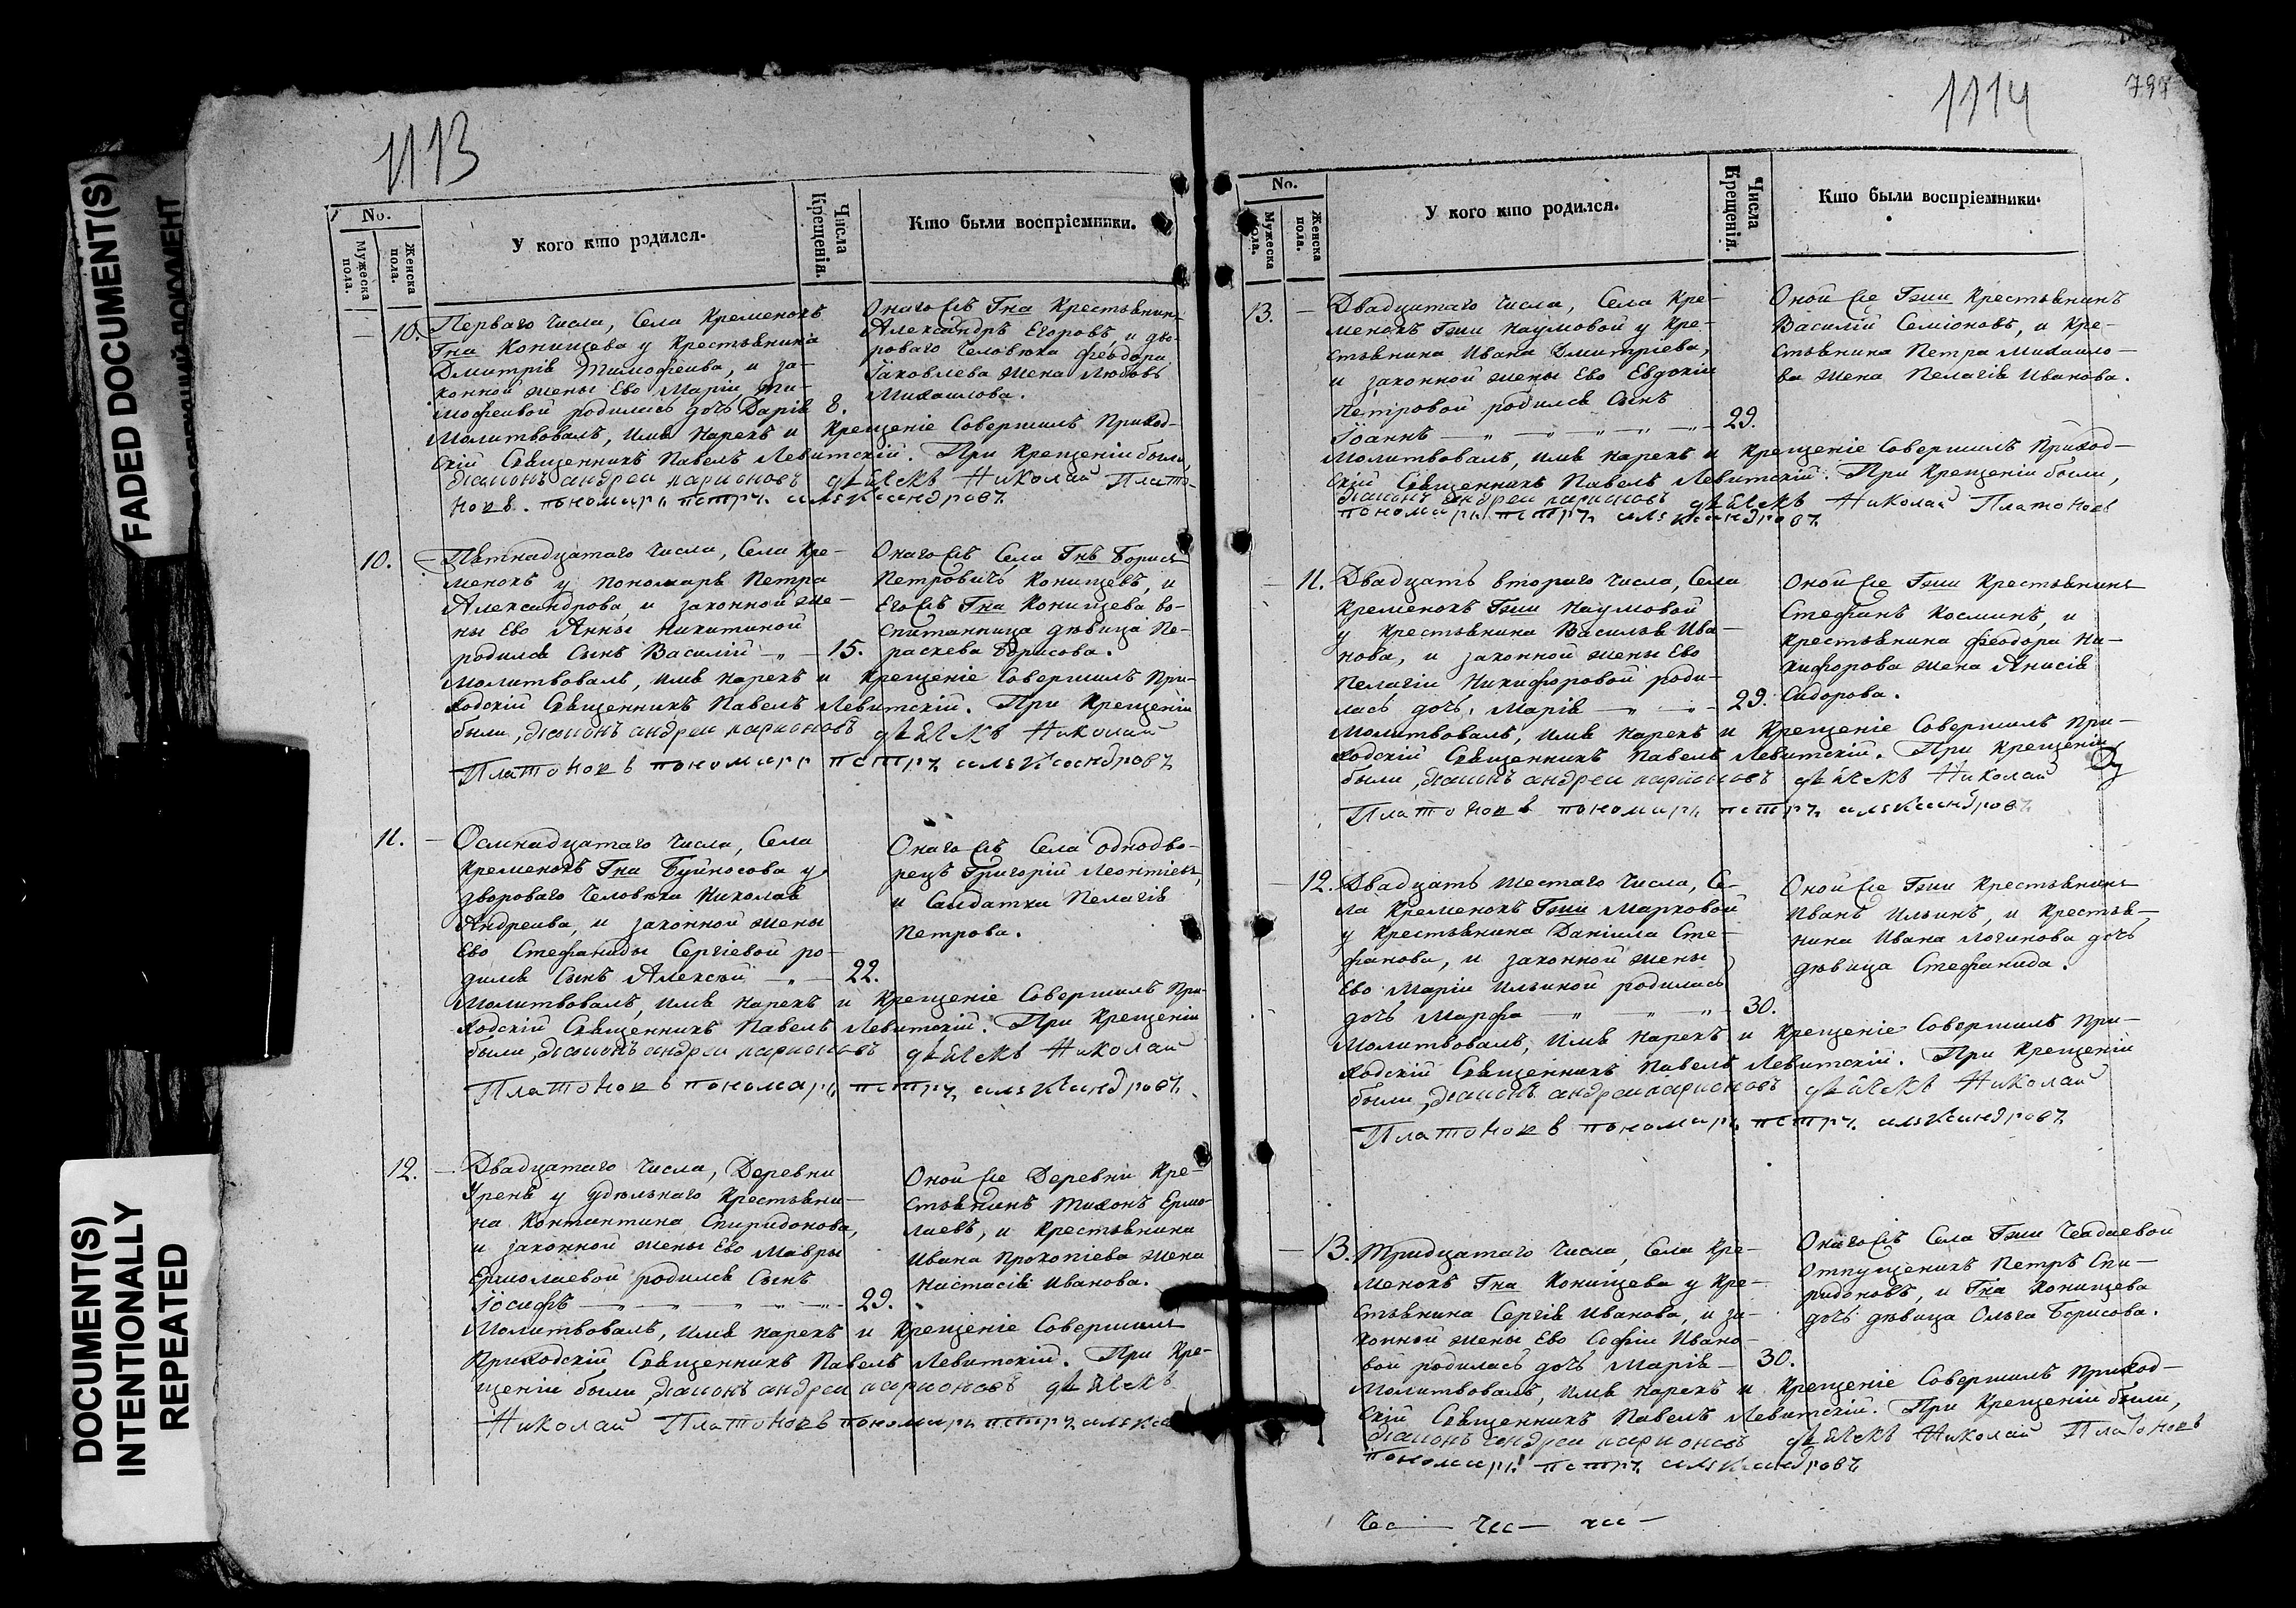 FADED DOCUMENT(S)
DOCUMENT(S)
INTENTIONALLY
REPEATED
1113
No.
Мужеска пола.
Женска пола.
У кого кто родился.
Числа Крещенія.
Кто были воспріемники.
— 10. Перваго числа, Села Кременокъ
Гна Конищева у крестьянина
Дмитрія Тимофеива, и за-
конной жены Ево Маріи Ти-
мофеивой родилась дочь Дарія 8.
Онагожъ Гна крестьянинъ
Александръ Егоровъ, и дво-
роваго человѣка Феодора
Іаковлева жена Любовь
Михаилова.
Молитвовалъ, имя нарекъ и крещеніе совершилъ приход-
скій Священникъ Павелъ Левитскій. При крещеніи были,
диаконъ андреи ларионовъ дьячекъ Николай Плато-
новъ. пономарь петръ александровъ
10. — Пятнадцатаго числа, Села Кре-
менокъ у пономаря Петра
Александрова, и законной же-
ны Ево Анны Никитиной
родился сынъ Василій — „ — 15.
Онагожъ Села Гнъ Борисъ
Петровичъ Конищевъ, и
Егожъ Гна Конищева во-
спитанница дѣвица Па-
расхева Борисова.
Молитвовалъ, имя нарекъ и крещеніе совершилъ при-
ходскій Священникъ Павелъ Левитскій. При крещеніи
были, диаконъ андреи ларионовъ дьячекъ Николай
Платоновъ пономарь петръ александровъ
11. — Осмнадцатаго числа, Села
Кременокъ Гна Буйносова у
двороваго человѣка Николая
Андреива, и законной жены
Ево Стефаниды Сергіевой ро-
дился сынъ Алексѣй — „ — 22.
Онагожъ Села однодво-
рецъ Григорій Леонтіевъ,
и Салдатка Пелагія
Петрова.
Молитвовалъ, имя нарекъ и крещеніе совершилъ при-
ходскій Священникъ Павелъ Левитскій. При крещеніи
были, диаконъ андреи ларионовъ дьячекъ Николай
Платоновъ пономарь петръ александровъ
12. — Двадцатаго числа, Деревни
Урень у удѣльнаго крестьяни-
на Контантина Спиридонова,
и законной жены Ево Мавры
Ермолаевой родился сынъ
Іосифъ — „ — „ — „ — 29.
Оной же Деревни кре-
стьянинъ Тихонъ Ермо-
лаевъ, и крестьянина
Ивана Прокопіева жена
Настасія Иванова.
Молитвовалъ, имя нарекъ и крещеніе совершилъ
приходскій Священникъ Павелъ Левитскій. При кре-
щеніи были, диаконъ андреи ларионовъ дьячекъ
Николай Платоновъ пономарь петръ алекса
1114
797
No.
Мужеска пола.
Женска пола.
У кого кто родился.
Числа Крещенія.
Кто были воспріемники.
13. — Двадцатаго числа, Села Кре-
менокъ Гжи Наумовой у кре-
стьянина Ивана Дмитріева,
и законной жены Ево Евдокіи
Петровой родился сынъ
Іоаннъ — „ — „ — „ — 29.
Оной же Гжи крестьянинъ
Василій Семіоновъ, и кре-
стьянина Петра Михаило-
ва жена Пелагія Иванова.
Молитвовалъ, имя нарекъ и крещеніе совершилъ приход-
скій Священникъ Павелъ Левитскій. При крещеніи были,
диаконъ андреи ларионовъ дьячекъ Николай Платоновъ
пономарь петръ александровъ
— 11. Двадцать втораго числа, Села
Кременокъ Гжи Наумовой
у крестьянина Василья Ива-
нова, и законной жены Ево
Пелагіи Никифоровой роди-
лась дочь Марія — „ — „ — 29.
Оной же Гжи крестьянинъ
Стефанъ Косминъ, и
крестьянина Феодора Ни-
кифорова жена Анисія
Сидорова.
Молитвовалъ, имя нарекъ и крещеніе совершилъ при-
ходскій Священникъ Павелъ Левитскій. При крещеніи
были, диаконъ андреи ларионовъ дьячекъ Николай
Платоновъ пономарь петръ александровъ
— 12. Двадцать шестаго числа, Се-
ла Кременокъ Гжи Марковой
у крестьянина Даніила Сте-
фанова, и законной жены
Ево Маріи Ильиной родилась
дочь Марфа — „ — „ — 30.
Оной же Гжи крестьянинъ
Иванъ Ильинъ, и крестья-
нина Ивана Логинова дочь
дѣвица Стефанида.
Молитвовалъ, имя нарекъ и крещеніе совершилъ при-
ходскій Священникъ Павелъ Левитскій. При крещеніи
были, диаконъ андреи ларионовъ дьячекъ Николай
Платоновъ пономарь петръ александровъ
— 13. Тридцатаго числа, Села Кре-
менокъ Гна Конищева у кре-
стьянина Сергія Иванова, и за-
конной жены Ево Софіи Ивано-
вой родилась дочь Марія — 30.
Онагожъ Села Гжи Чеадаевой
отпущеникъ Петръ Спи-
ридоновъ, и Гна Конищева
дочь дѣвица Ольга Борисова.
Молитвовалъ, имя нарекъ и крещеніе совершилъ приход-
скій Священникъ Павелъ Левитскій. При крещеніи были,
диаконъ андреи ларионовъ дьячекъ Николай Платоновъ
пономарь петръ александровъ